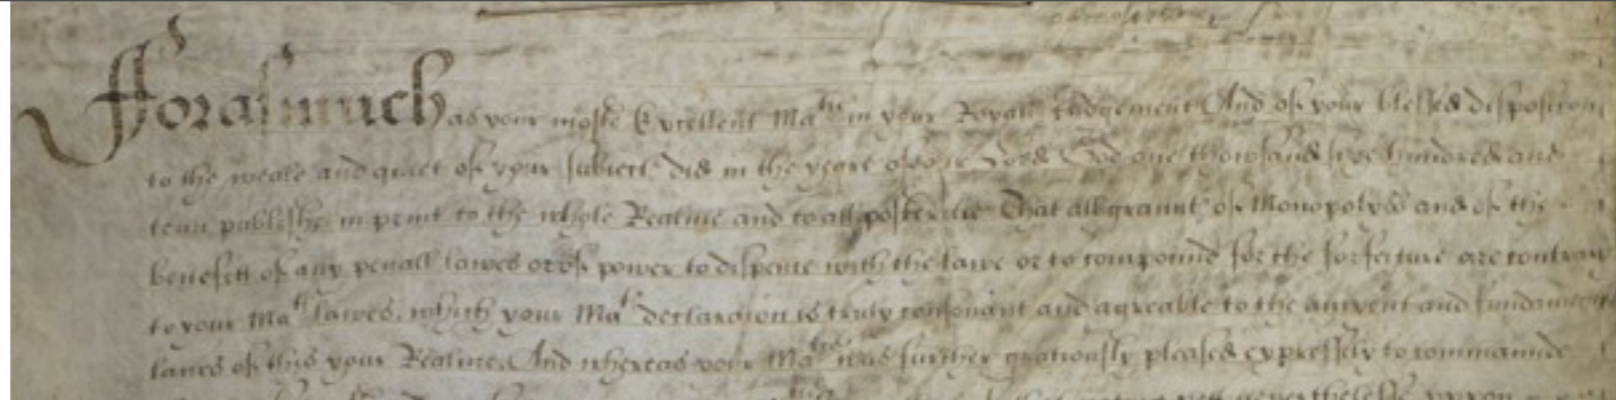 Fforasmuch as your moste Excellent Ma^tie in your Royall Judgement And of your blessed disposition
to the weale and quiet of your subiects did in the yeare of our Lord God one thowsand sixe hundred and
tenn publishe in print to the whole Realme and to all posteritie That all graunts of Monopolyes and of the
benefitt of any penall lawes or of power to dispence with the lawe or to compound for the forfeiture are contrary
to your Ma^ts lawes, which your Ma^ts declaracion is truly consonant and agreable to the auncient and fundamentall
lawes of this your Realme. And whereas your Ma^tie was further gratiously pleased expressely to commaunde
neverthelesse uppon